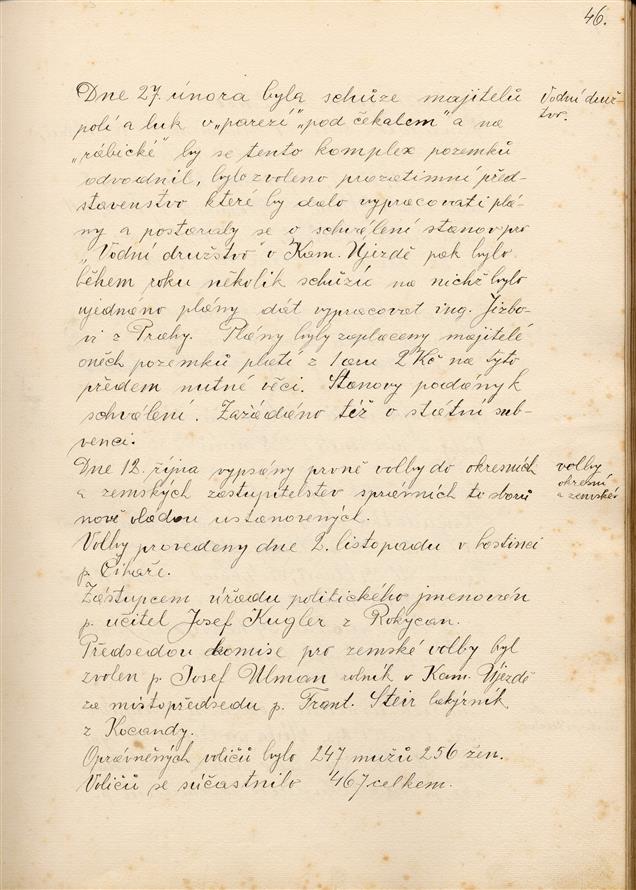 46.
Dne 27. února byla schůze majitelů
Vodní druž-
tvo.
polí a luk v „pařezí" „pod čekalem" a na
„rábické" by se tento komplex pozemků
odvodnil, bylo zvoleno prozatimní před-
stavenstvo které by dalo vypracovati plá-
ny a postaraly se o schválení stanov pro
„Vodní družstvo" v Kam. Újezdě pak bylo
během roku několik schůzí na nichž bylo
ujednáno plány dát vypracovat ing. Jizbo-
vi z Prahy. Plány byly zaplaceny majitelé
oněch pozemků platí z 1 aru 2 Kč na tyto
předem nutné věci. Stanovy podány k
schválení. Zažádáno též o státní sub-
venci.
Dne 12. října vypsány prvně volby do okresních
volby
okresní
a zemské
a zemských zastupitelstev správních to sborů
nově vládou ustanovených.
Volby provedeny dne 2. listopadu v hostinci
p. Čihaře.
Zástupcem úřadu politického jmenován
p. učitel Josef Kugler z Rokycan.
Předsedou komise pro zemské volby byl
zvolen p. Josef Ulman rolník v Kam. Újezdě
za místopředsedu p. Frant. Steir
z Kocandy.
Oprávněných voličů bylo 247 mužů 256 žen.
Voličů se súčastnilo 467 celkem.